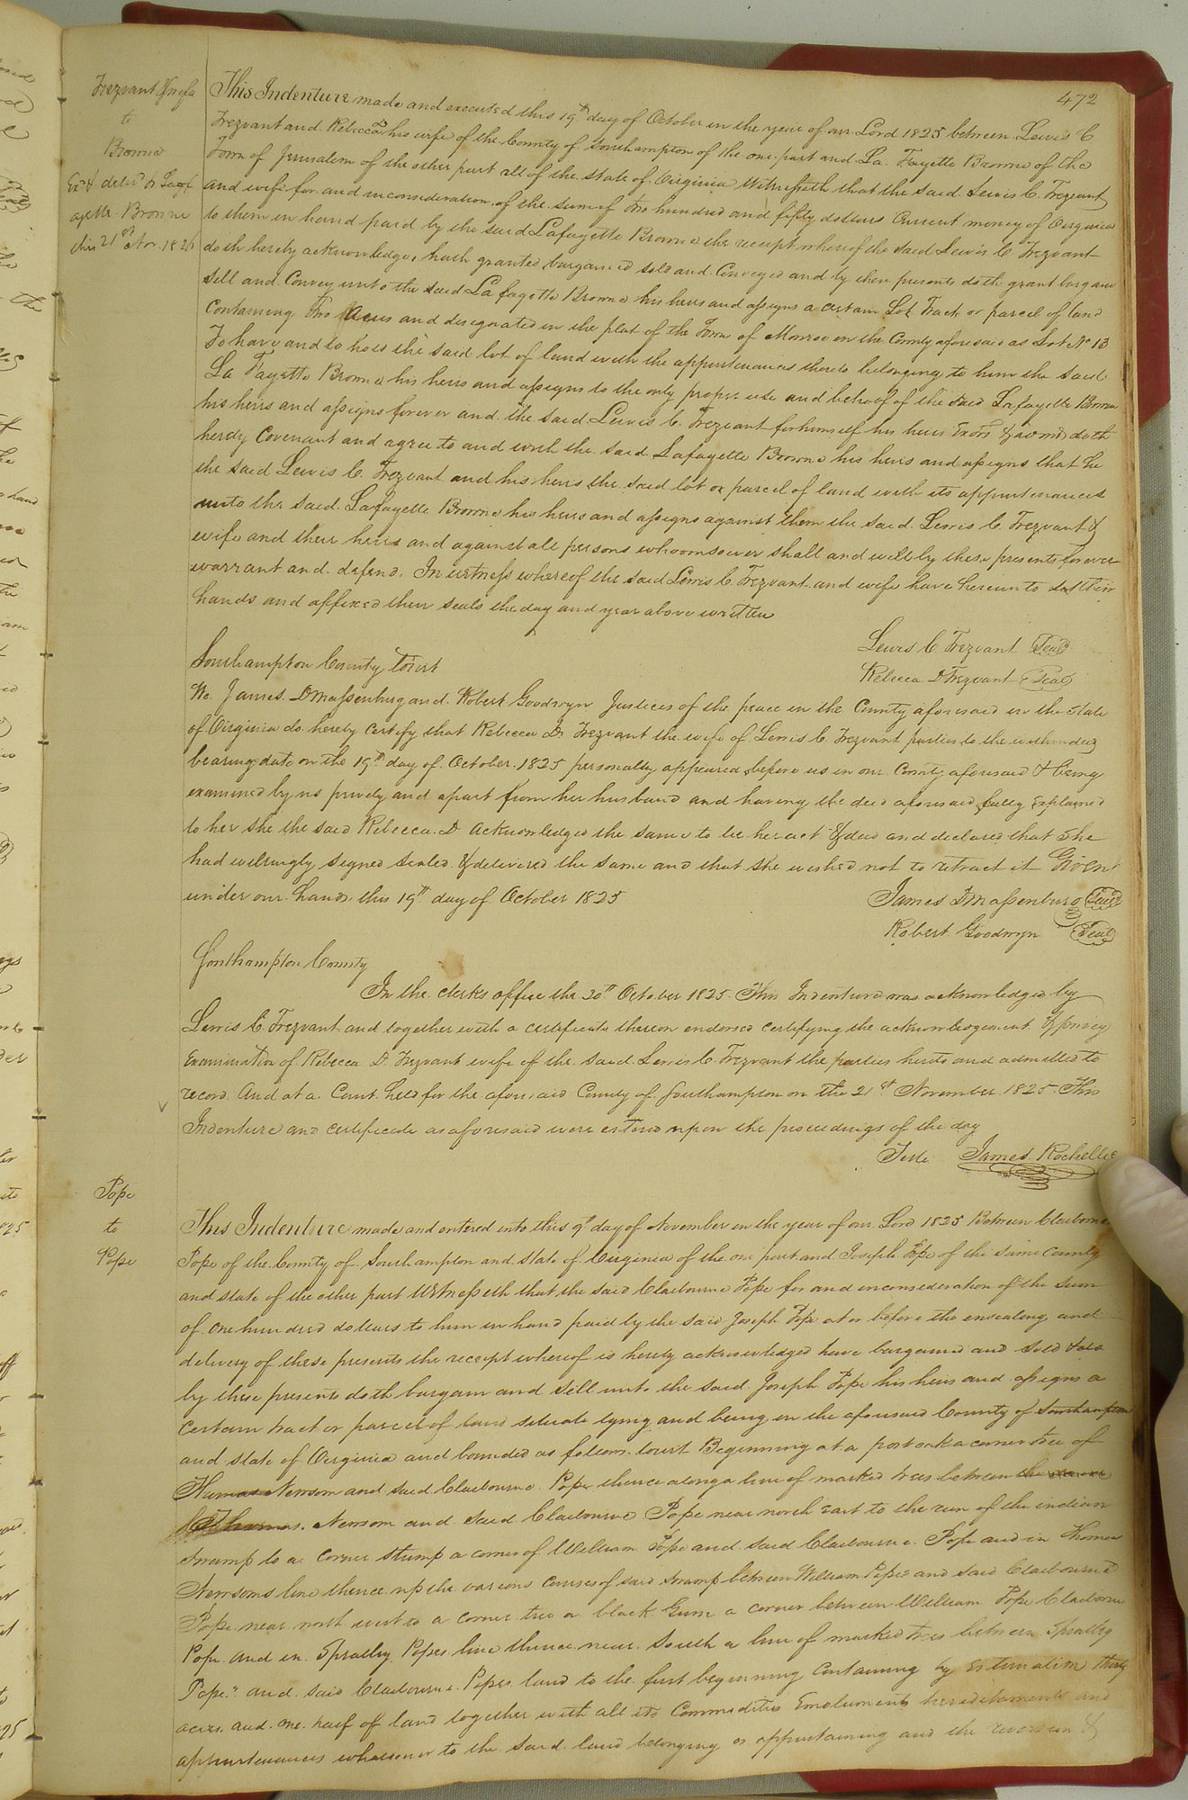 472
Trezvant & wife
to
Browne
Ex'd deliv'd to Lafay
ayette Browne
this 21st Nov. 1826
This Indenture made and executed this 19th day of October in the year of our Lord 1825 between Lewis C
Trezvant and Rebecca D his wife of the County of Southampton of the one part and La Fayette Browne of the
Town of Jerusalem of the other part all of the State of Virginia Witnesseth that the said Lewis C. Trezvant
and wife for and in consideration of the sum of two hundred and fifty dollars Current money of Virginia
to them in hand paid by the said Lafayette Browne the receipt whereof the said Lewis C Trezvant
doth hereby acknowledge, hath granted, bargained sold and Conveyed and by these presents doth grant bargain
sell and Convey unto the said Lafayette Browne his heirs and assigns a certain Lot Tract or parcel of land
Containing two Acres and designated in the plat of the Town of Monroe in the County aforesaid as Lot No 13
To have and to hold the said lot of land with the appurtenances thereto belonging to him the said
La Fayette Browne his heirs and assigns to the only proper use and behoof of the said Lafayette Browne
his heirs and assigns forever and the said Lewis C. Trezvant for himself his heirs Exors & admrs doth
hereby Covenant and agree to and with the said Lafayette Browne his heirs and assigns that he
the said Lewis C. Trezvant and his heirs the said lot or parcel of land with its appurtenances
unto the said Lafayette Browne his heirs and assigns against them the said Lewis C. Trezvant &
wife and their heirs and against all persons whoomsoever shall and will by these presents forever
warrant and defend. In witness whereof the said Lewis C. Trezvant and wife have hereunto set their
hands and affixed their seals the day and year above written
Lewis C Trezvant Seal
Rebecca D Trezvant Seal
Southampton County towit
We James D Massenburg and Robert Goodwyn Justices of the peace in the County aforesaid in the State
of Virginia do hereby Certify that Rebecca D. Trezvant the wife of Lewis C Trezvant parties to the within deed
bearing date on the 19th day of October 1825 personally appeared before us in our County aforesaid & being
examined by us privily and apart from her husband and having the deed aforesaid fully Explained
to her she the said Rebecca D Acknowledged the same to be her act & deed and declared that she
had willingly signed sealed & delivered the same and that she wished not to retract it Given
under our hands this 19th day of October 1825
James D Massenburg Seal
Robert Goodwyn Seal
Southampton County
In the clerks office the 20th October 1825 This Indenture was acknowledged by
Lewis C. Trezvant and together with a certificate thereon endorsed certifying the acknowledgement & privy
Examination of Rebecca D. Trezvant wife of the said Lewis C. Trezvant the parties hereto and admitted to
record. And at a Court held for the aforesaid County of Southampton on the 21st November 1825 This
Indenture and certificate as aforesaid were entered upon the proceedings of the day
Teste James Rochelle
Pope
to
Pope
This Indenture made and entered into this 9th day of November in the year of our Lord 1825 Between Claiborne
Pope of the County of Southampton and State of Virginia of the one part and Joseph Pope of the same County
and state of the other part Witnesseth that the said Claibourne Pope for and in consideration of the sum
of one hundred dollars to him in hand paid by the said Joseph Pope at or before the ensealing and
delivery of these presents the receipt whereof is hereby acknowledged have bargained and sold &
by these presents doth bargain and sell unto the said Joseph Pope his heirs and assigns a
Certain tract or parcel of land situate lying and being in the aforesaid County of Southampton
and state of Virginia and bounded as follows towit Beginning at a post oak a corner tree of
Newsom and said Claibourne Pope thence along a line of marked trees between the
Thomas Newsom and said Claibourne Pope near north east to the run of the indian
swamp to a corner stump a corner of William Pope and said Claibourne Pope and in Thomas
Newsoms line thence up the various Courses of said swamp between William Pope and said Claibourne
Pope near north west to a corner tree a black Gum a corner between William Pope Claiborne
Pope and in Spratley Popes line thence near South a line of marked trees between Spratley
Pope and said Claibourne Popes land to the first beginning Containing by Estimation thirty
acres and one half of land together with all its Commodities Emoluments hereditaments and
appurtenances whatsoever to the said land belonging or appertaining and the reversion &